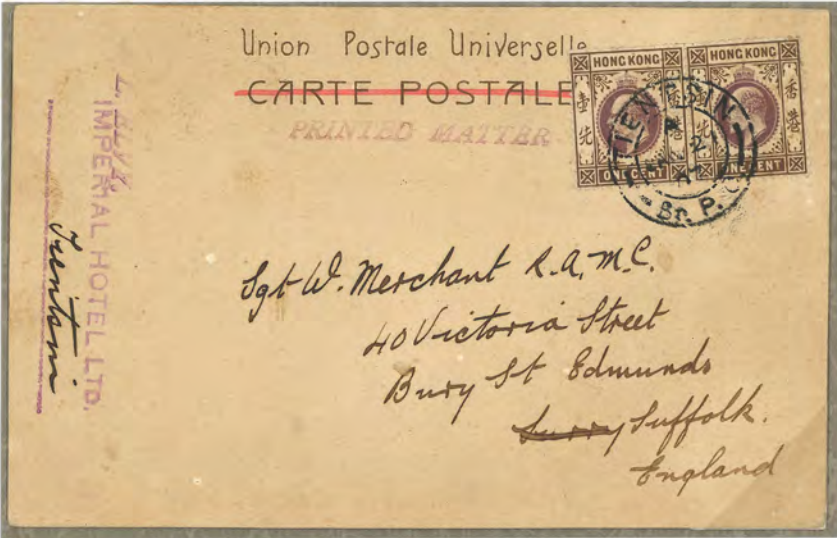 Union Postale Universelle
CARTE POSTALE
PRINTED MATTER
HONG KONG
香港
壹
ONE CENT
HONG KONG
香港
ONE CENT
TIENTSIN
Br. P. O.
IMPERIAL HOTEL LTD.
Tientsin
Sgt W. Merchant R.A.M.C.
40 Victoria Street
Bury St Edmunds
Surry Suffolk.
England